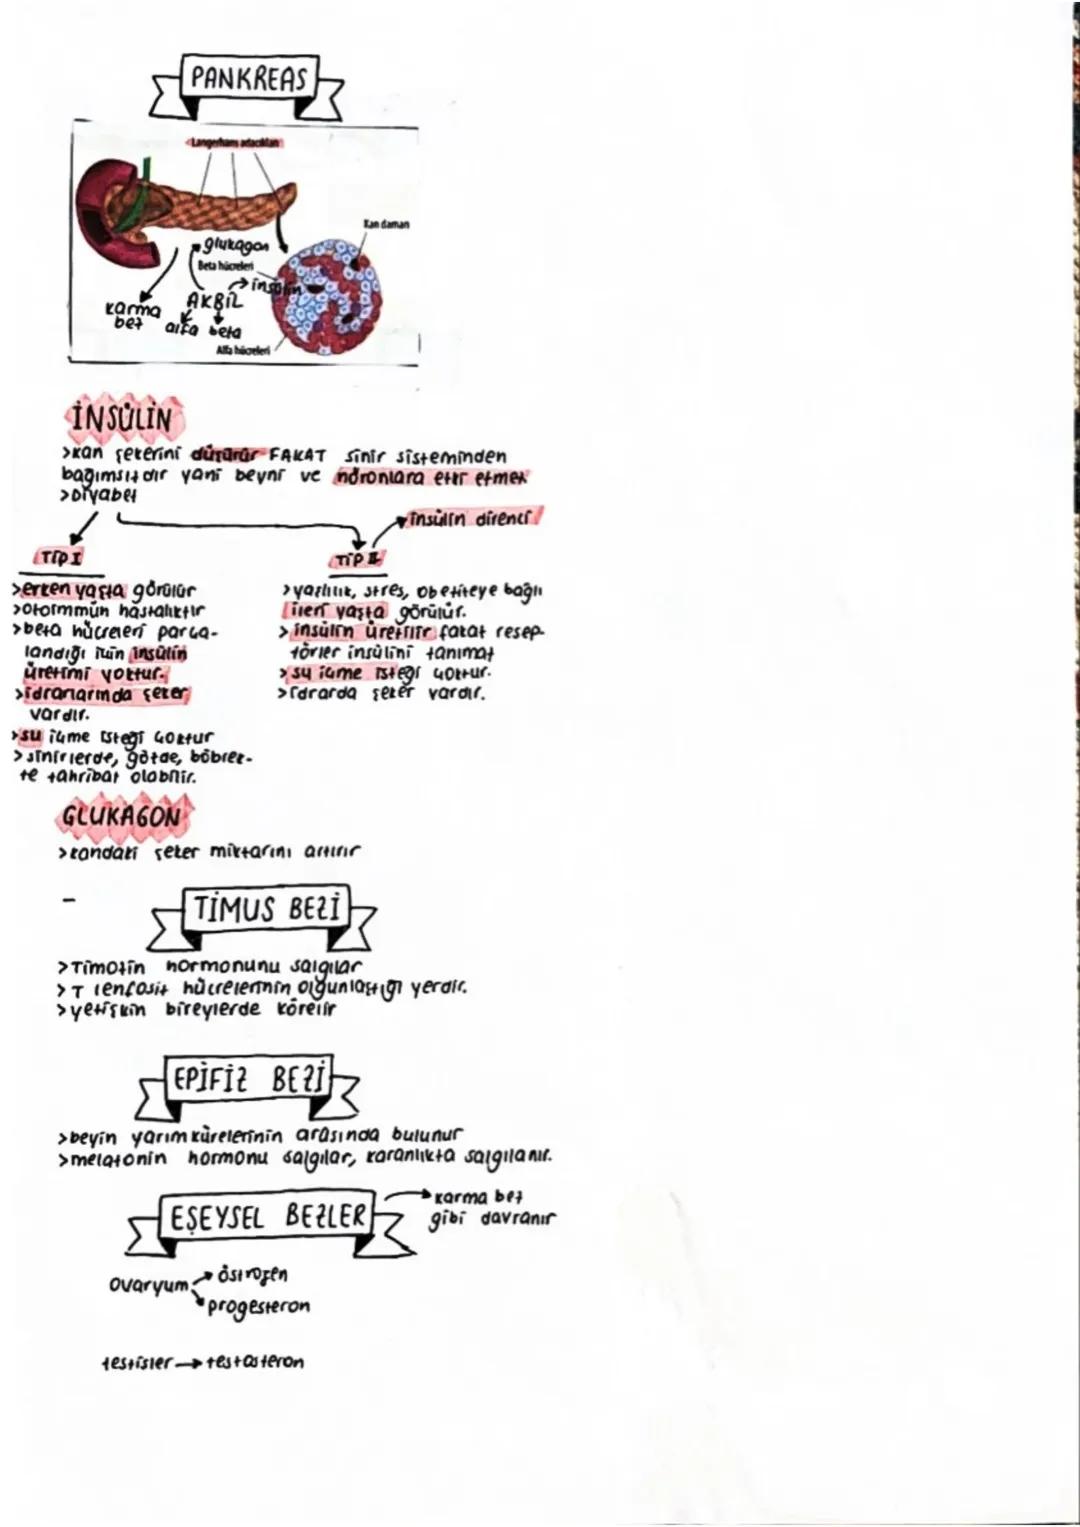 PANKREAS
Langerhans adacıkları
Kan damarı
glukagon
Beta hücreleri
insülin
AKBİL
karma
bez
alfa beta
Alfa hücreleri
İNSÜLİN
>kan şekerini düşürür FAKAT sinir sisteminden
bağımsızdır yani beyni ve nöronlara etki etmez
>Diyabet
insülin direnci
TİP I
TİP II
>erken yaşta görülür
>otoimmün hastalıktır
>beta hücreleri parça-
landığı için insülin
üretimi yoktur.
>idrarlarında şeker
vardır.
>su içme isteği çoktur
>sinirlerde, gözde, böbrek-
te tahribat olabilir.
>yaşlılık, stres, obeziteye bağlı
ileri yaşta görülür.
>insülin üretilir fakat resep-
törler insülini tanımaz
>su içme isteği çoktur.
>idrarda şeker vardır.
GLUKAGON
>kandaki şeker miktarını artırır
TİMUS BEZİ
>Timozin hormonunu salgılar
>T lenfosit hücrelerinin olgunlaştığı yerdir.
>yetişkin bireylerde körelir
EPİFİZ BEZİ
>beyin yarım kürelerinin arasında bulunur
>melatonin hormonu salgılar, karanlıkta salgılanır.
EŞEYSEL BEZLER
karma bez
gibi davranır
ovaryum
östrojen
progesteron
testisler → testosteron